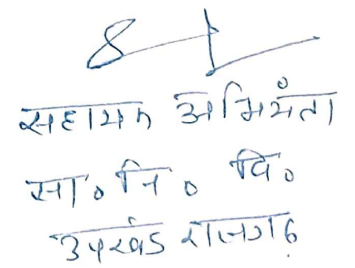 सहायक अभियंता
सा. नि. वि.
उपखंड राजगढ़